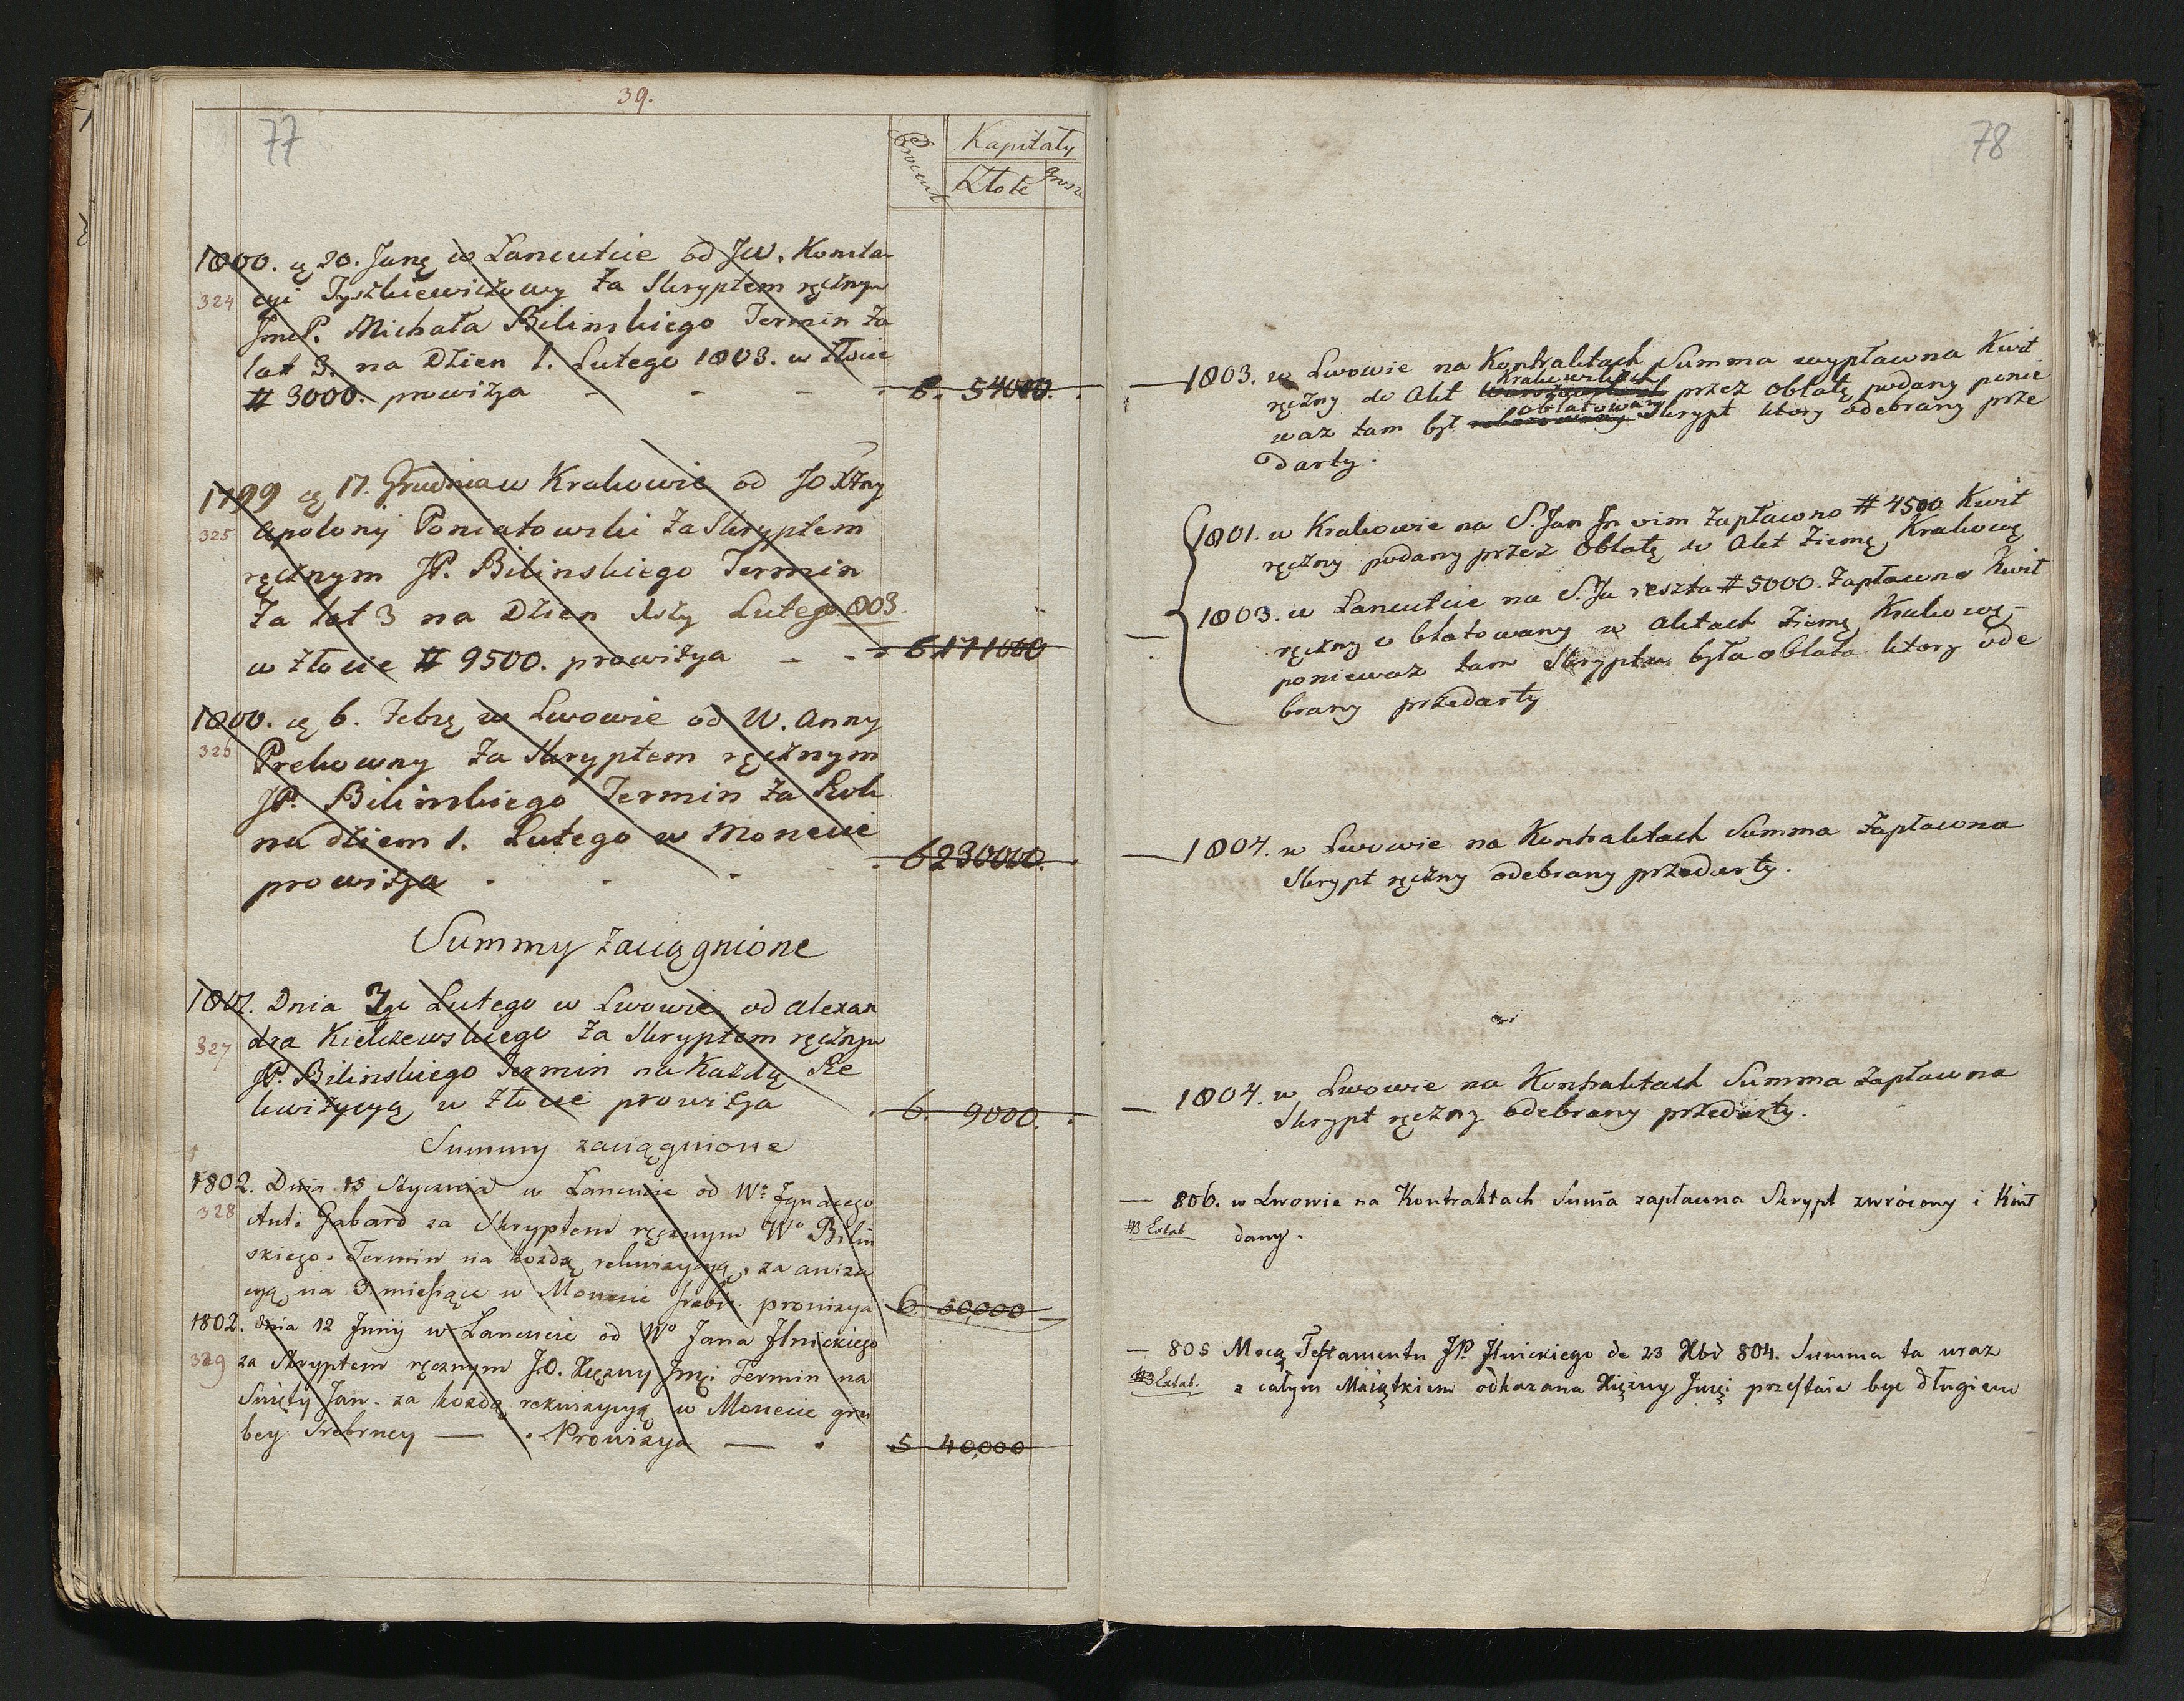 39.
77
Procent
Kapitały
Złote
Grosze
1800. ą 20. Junę w Łancutcie od JW. Konsta
324 cyi Tyszkiewiczowy Za Skryptem ręcznym
JmćP. Michała Bilinskiego Termin Za
lat 3. na Dzien 1. Lutego 1803. w Złocie
# 3000. prowizya - - - 6. 54000.
1799 ą 17. Grudnia w Krakowie od JO Xżny
325 Apolonij Poniatowski Za Skryptem
ręcznym JP. Bilinskiego Termin
Za lat 3 na Dzien 1szy Lutego 803.
w złocie # 9500. prowizya - - 6 171000
1800. ą 6. Febrę w Lwowie od W. Anny
326 Prekowny Za Skryptem ręcznym
JP. Bilinskiego Termin Za Rok
na dziem 1. Lutego w Monecie
prowizya . . . . 6 230000.
Summy zaciągnione
1801. Dnia 3go Lutego w Lwowie od Alexan
327 dra Kielczewskiego Za Skryptem ręcznym
JP. Bilinskiego Termin na Każdą Re
kwizycyą w Złocie prowizya . 6. 9000.
Summy zaciągnione
1802. Dnia 15 Stycznia w Lancucie od Wo Jgnacego
328 Ant: Gabard za Skryptem ręcznym Wo Bilin
skiego. Termin na kożdą rekwizycyą, za awiza
cyą na 3 miesiące w Monecie srebr. prowizya 6. 60,000
1802. dnia 12 Junij w Lancucie od Wo Jana Jlnickiego
329 za Skryptem ręcznym J.O. Xiężny Jmći Termin na
Swięty Jan. za kożdą rekwizycyą w Monecie gru
bey Srebrney — . Prowizya — . 5 40,000
78
1803. w Lwowie na Kontraktach Summa wypłacona Kwit
Krakowskich
ręczny do Akt przez Oblatę podany ponie
oblatowany
waz tam był Skrypt ktory odebrany prze
darty.
1801. w Krakowie na S. Jan Jn vim Zapłacono # 4500 Kwit
ręczny podany przez Oblatę do Akt Ziemę Krakowę
1803. w Lancutcie na S. Ja reszta # 5000. Zapłacona Kwit
ręczny oblatowany w Aktach Ziemę Krakowę-
poniewaz tam Skryptu była oblata ktory ode
brany przedarty
1804. w Lwowie na Kontraktach Summa Zapłacona
Skrypt ręczny odebrany przedarty.
1804. w Lwowie na Kontraktach Summa Zapławna
Skrypt ręczny odebrany przedarty.
— 806. w Lwowie na Kontraktach Suma zapłacona Skrypt zwrócony i Kwit
#3 Extab dany.
— 805 Mocą Testamentu JP. Jlnickiego de 23 Xbr 804. Summa ta wraz
#3 Extab. z całym Maiątkiem odkazana Xiężny Jmći przestaie byc długiem